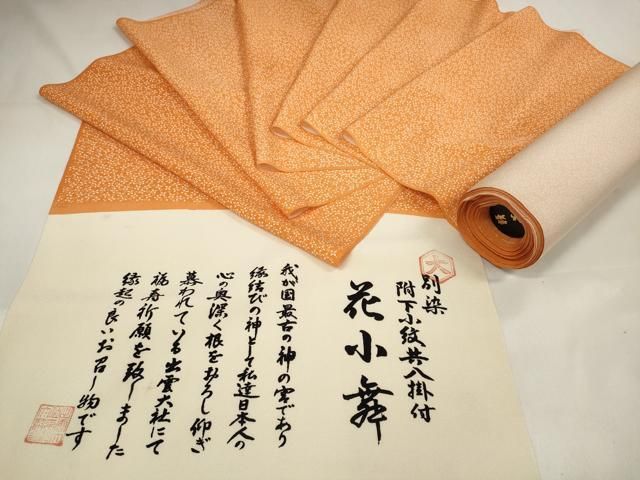 大
別染
附下小紋共八掛付
花小舞
我が国最古の神の宮であり
縁結びの神として私達日本人の
心の奥深く根をおろし仰ぎ
慕われている出雲大社にて
福寿祈願を致しました
縁起の良いお召し物です